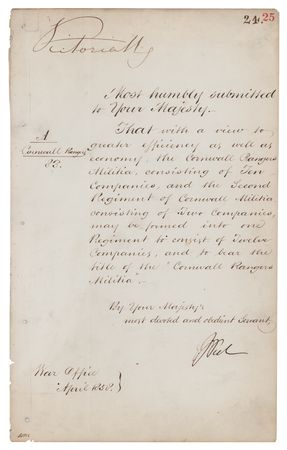 24. 25
Victoria R
Most humbly submitted
to Your Majesty.
That with a view to
greater efficiency as well as
economy, the Cornwall Rangers
Militia, consisting of Ten
Companies, and the Second
Regiment of Cornwall Militia
consisting of Two Companies,
may be formed into one
Regiment to consist of Twelve
Companies, and to bear the
title of the "Cornwall Rangers
Militia".
A
Cornwall Rangrs
82.
By Your Majesty's
most devoted and obedient Servant,
JPeel
War Office
April 1858.